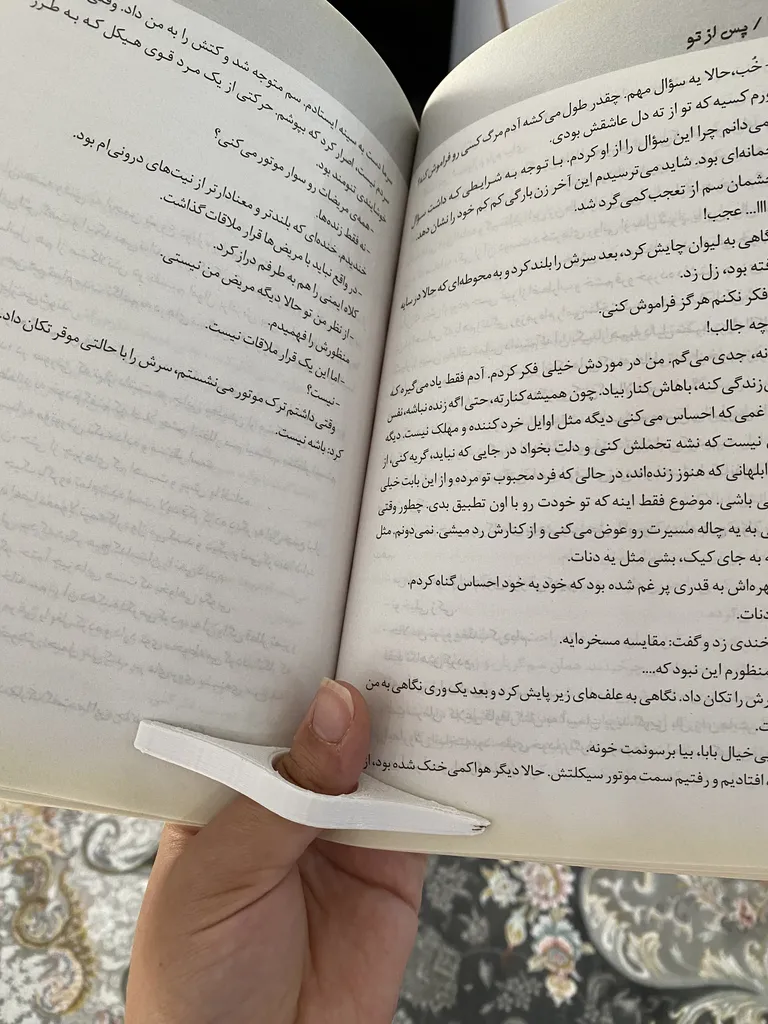 / پس از تو
- خُب، حالا یه سؤال مهم. چقدر طول می‌کشه آدم مرگ کسی رو فراموش کنه؟
ورم کسیه که تو از ته دل عاشقش بودی.
می‌دانم چرا این سؤال را از او کردم. با توجه به شرایطی که داشت سؤال
حمانه‌ای بود. شاید می‌ترسیدم این آخر زن‌بارگی کم کم خود را نشان دهد.
چشمان سم از تعجب کمی گرد شد.
ااا... عجب!
گاهی به لیوان چایش کرد، بعد سرش را بلند کرد و به محوطه‌ای که حالا در سایه
فته بود، زل زد.
فکر نکنم هرگز فراموش کنی.
چه جالب!
نه، جدی می‌گم. من در موردش خیلی فکر کردم. آدم فقط یاد می‌گیره که
زندگی کنه، باهاش کنار بیاد. چون همیشه کنارته، حتی اگه زنده نباشه، نفس
غمی که احساس می‌کنی دیگه مثل اوایل خرد کننده و مهلک نیست. دیگه
نیست که نشه تحملش کنی و دلت بخواد در جایی که نباید، گریه کنی، از
ابلهانی که هنوز زنده‌اند، در حالی که فرد محبوب تو مرده و از این بابت خیلی
ی باشی. موضوع فقط اینه که تو خودت رو با اون تطبیق بدی. چطور وقتی
ی به یه چاله مسیرت رو عوض می‌کنی و از کنارش رد میشی. نمی‌دونم. مثل
ه به جای کیک، بشی مثل یه دنات.
هره‌اش به قدری پر غم شده بود که خود به خود احساس گناه کردم.
دنات.
خندی زد و گفت: مقایسه مسخره‌ایه.
منظورم این نبود که....
رش را تکان داد. نگاهی به علف‌های زیر پایش کرد و بعد یک وری نگاهی به من
ت.
ی خیال بابا، بیا برسونمت خونه.
افتادیم و رفتیم سمت موتور سیکلتش. حالا دیگر هوا کمی خنک شده بود، از
دست به سینه ایستادم. سم متوجه شد و کتش را به من داد. وقتی
سردم نیست، اصرار کرد که بپوشم. حرکتی از یک مرد قوی هیکل که به طرز
خوشایندی تنومند بود.
- همه‌ی مریضات رو سوار موتور می‌کنی؟
- نه فقط زنده‌ها.
خندیدم. خنده‌ای که بلندتر و معنادارتر از نیت‌های درونی‌ام بود.
- در واقع نباید با مریض‌ها قرار ملاقات گذاشت.
کلاه ایمنی را هم به طرفم دراز کرد.
- از نظر من تو حالا دیگه مریض من نیستی.
منظورش را فهمیدم.
- اما این یک قرار ملاقات نیست.
- نیست؟
وقتی داشتم ترک موتور می‌نشستم، سرش را با حالتی موقر تکان داد.
کرد: باشه نیست.